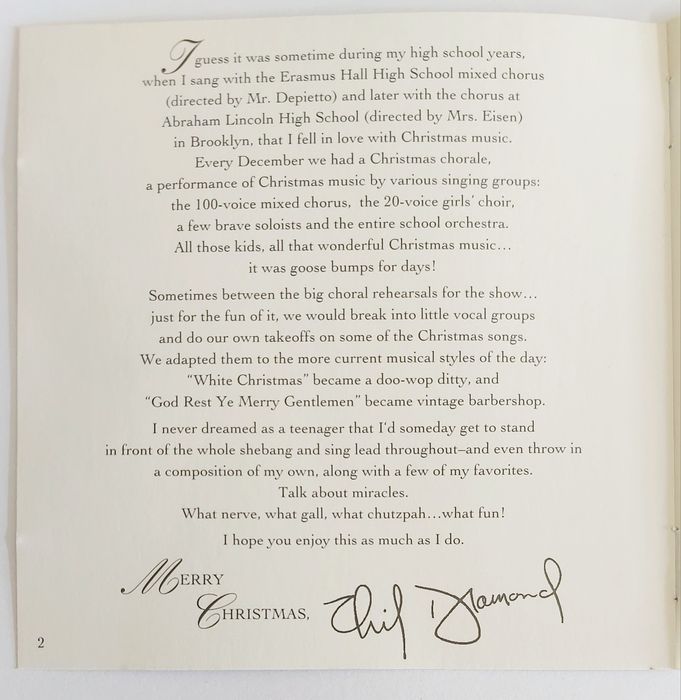 I guess it was sometime during my high school years,
when I sang with the Erasmus Hall High School mixed chorus
(directed by Mr. Depietto) and later with the chorus at
Abraham Lincoln High School (directed by Mrs. Eisen)
in Brooklyn, that I fell in love with Christmas music.
Every December we had a Christmas chorale,
a performance of Christmas music by various singing groups:
the 100-voice mixed chorus, the 20-voice girls' choir,
a few brave soloists and the entire school orchestra.
All those kids, all that wonderful Christmas music...
it was goose bumps for days!
Sometimes between the big choral rehearsals for the show...
just for the fun of it, we would break into little vocal groups
and do our own takeoffs on some of the Christmas songs.
We adapted them to the more current musical styles of the day:
“White Christmas” became a doo-wop ditty, and
“God Rest Ye Merry Gentlemen” became vintage barbershop.
I never dreamed as a teenager that I'd someday get to stand
in front of the whole shebang and sing lead throughout–and even throw in
a composition of my own, along with a few of my favorites.
Talk about miracles.
What nerve, what gall, what chutzpah...what fun!
I hope you enjoy this as much as I do.
MERRY
CHRISTMAS,
Diamond
2